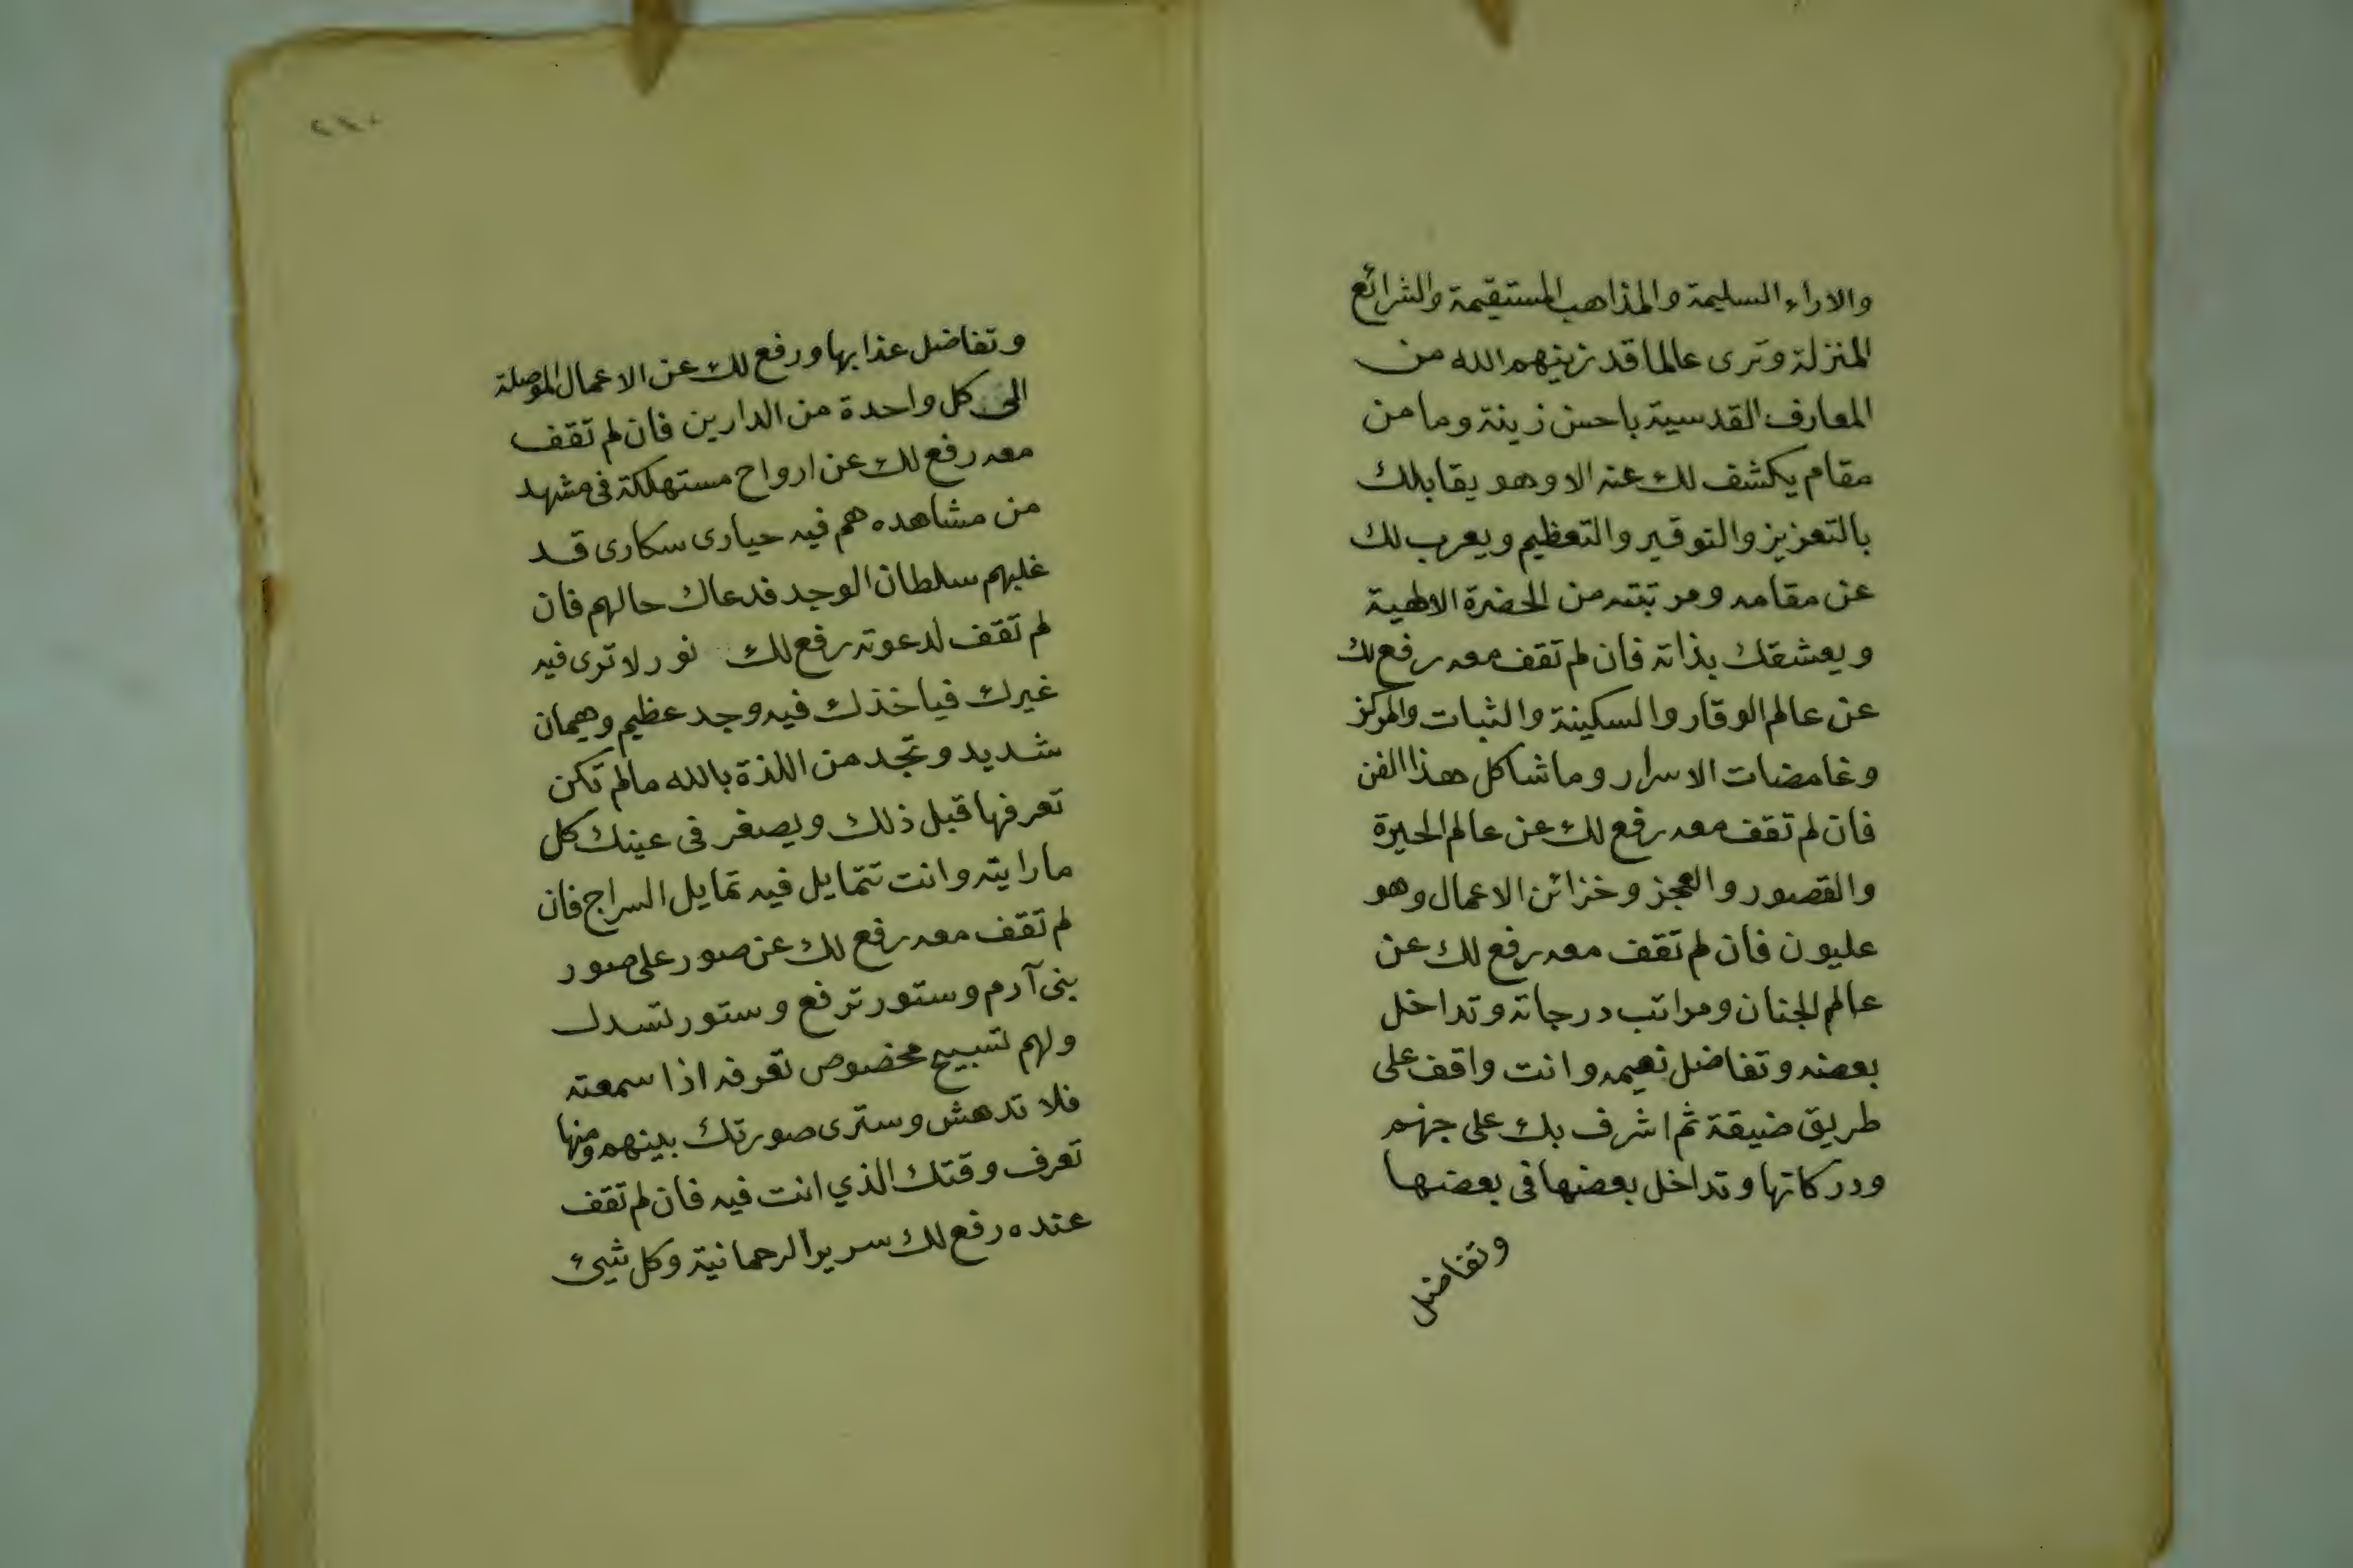 والاراء السليمة والمذاهب المستقيمة والشرائع
المنزلة وترى عالما قد زينهم الله من
المعارف القدسية باحسن زينة وما من
مقام يكشف لك عنه الا وهو يقابلك
بالتعزيز والتوقير والتعظيم ويعرب لك
عن مقامه ومرتبته من الحضرة الالهية
ويعشقك بذاته فان لم تقف معه رفع لك
عن عالم الوقار والسكينة والثبات والمركز
وغامضات الاسرار وما شاكل هذا الفن
فان لم تقف معه رفع لك عن عالم الحيرة
والقصور والعجز وخزائن الاعمال وهو
عليون فان لم تقف معه رفع لك عن
عالم الجنان ومراتب درجاته وتداخل
بعضه وتفاضل نعيمه وانت واقف على
طريق ضيقة ثم اشرف بك على جهنم
ودركاتها وتداخل بعضها فى بعضها
وتفاضل
وتفاضل عذابها ورفع لك عن الاعمال الموصلة
الى كل واحدة من الدارين فان لم تقف
معه رفع لك عن ارواح مستهلكة فى مشهد
من مشاهده هم فيه حيارى سكارى قد
غلبهم سلطان الوجد فدعاك حالهم فان
لم تقف لدعوته رفع لك نور لا ترى فيه
غيرك فياخذك فيه وجد عظيم وهيمان
شديد وتجد من اللذة بالله مالم تكن
تعرفها قبل ذلك ويصغر فى عينك كل
ما رايته وانت تتمايل فيه تمايل السراج فان
لم تقف معه رفع لك عن صور على صور
بنى آدم وستور ترفع وستور تسدل
ولهم تسبيح مخصوص تعرفه اذا سمعته
فلا تدهش وسترى صورتك بينهم ومنها
تعرف وقتك الذي انت فيه فان لم تقف
عنده رفع لك سرير الرحمانية وكل شيئ